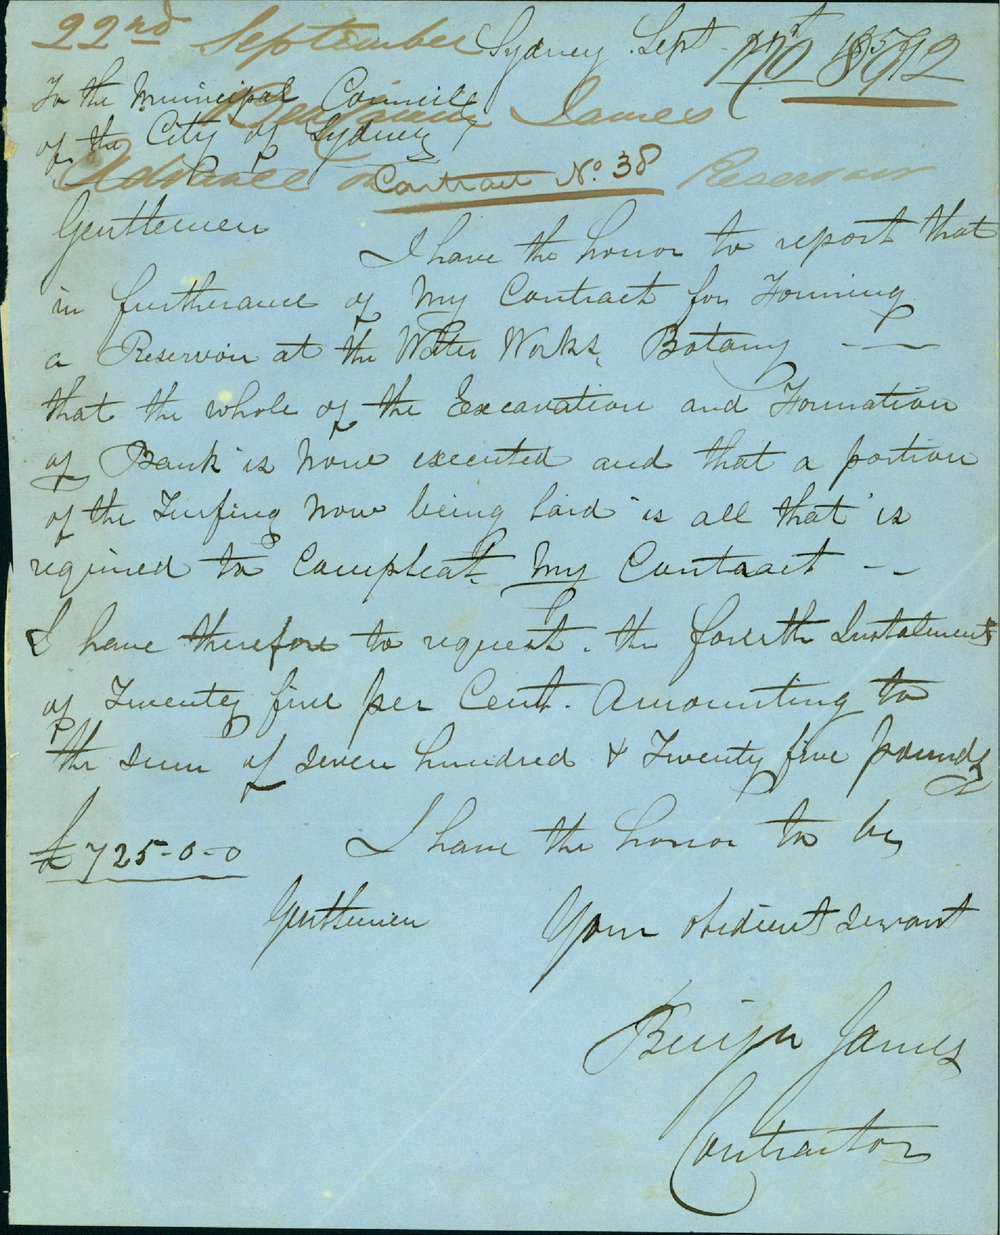 22nd September
Sydney Sept
To the Municipal Council
of the City of Sydney
Benjamin James
Advance on Reservoir
Contract No. 38
Gentlemen
I have the honor to report that
in furtherance of My Contract for Forming
a Reservoir at the Water Works, Botany
that the whole of the Excavation and Formation
of Bank is Now executed and that a portion
of the Turfing Now being laid is all that is
required to Compleat My Contract
I have therefore to request the fourth Instalment
of Twenty five per Cent. Amounting to
the sum of seven hundred & Twenty five pounds
£725-0-0
I have the honor to be
Gentlemen
Your obedient servant
Benjn James
Contractor